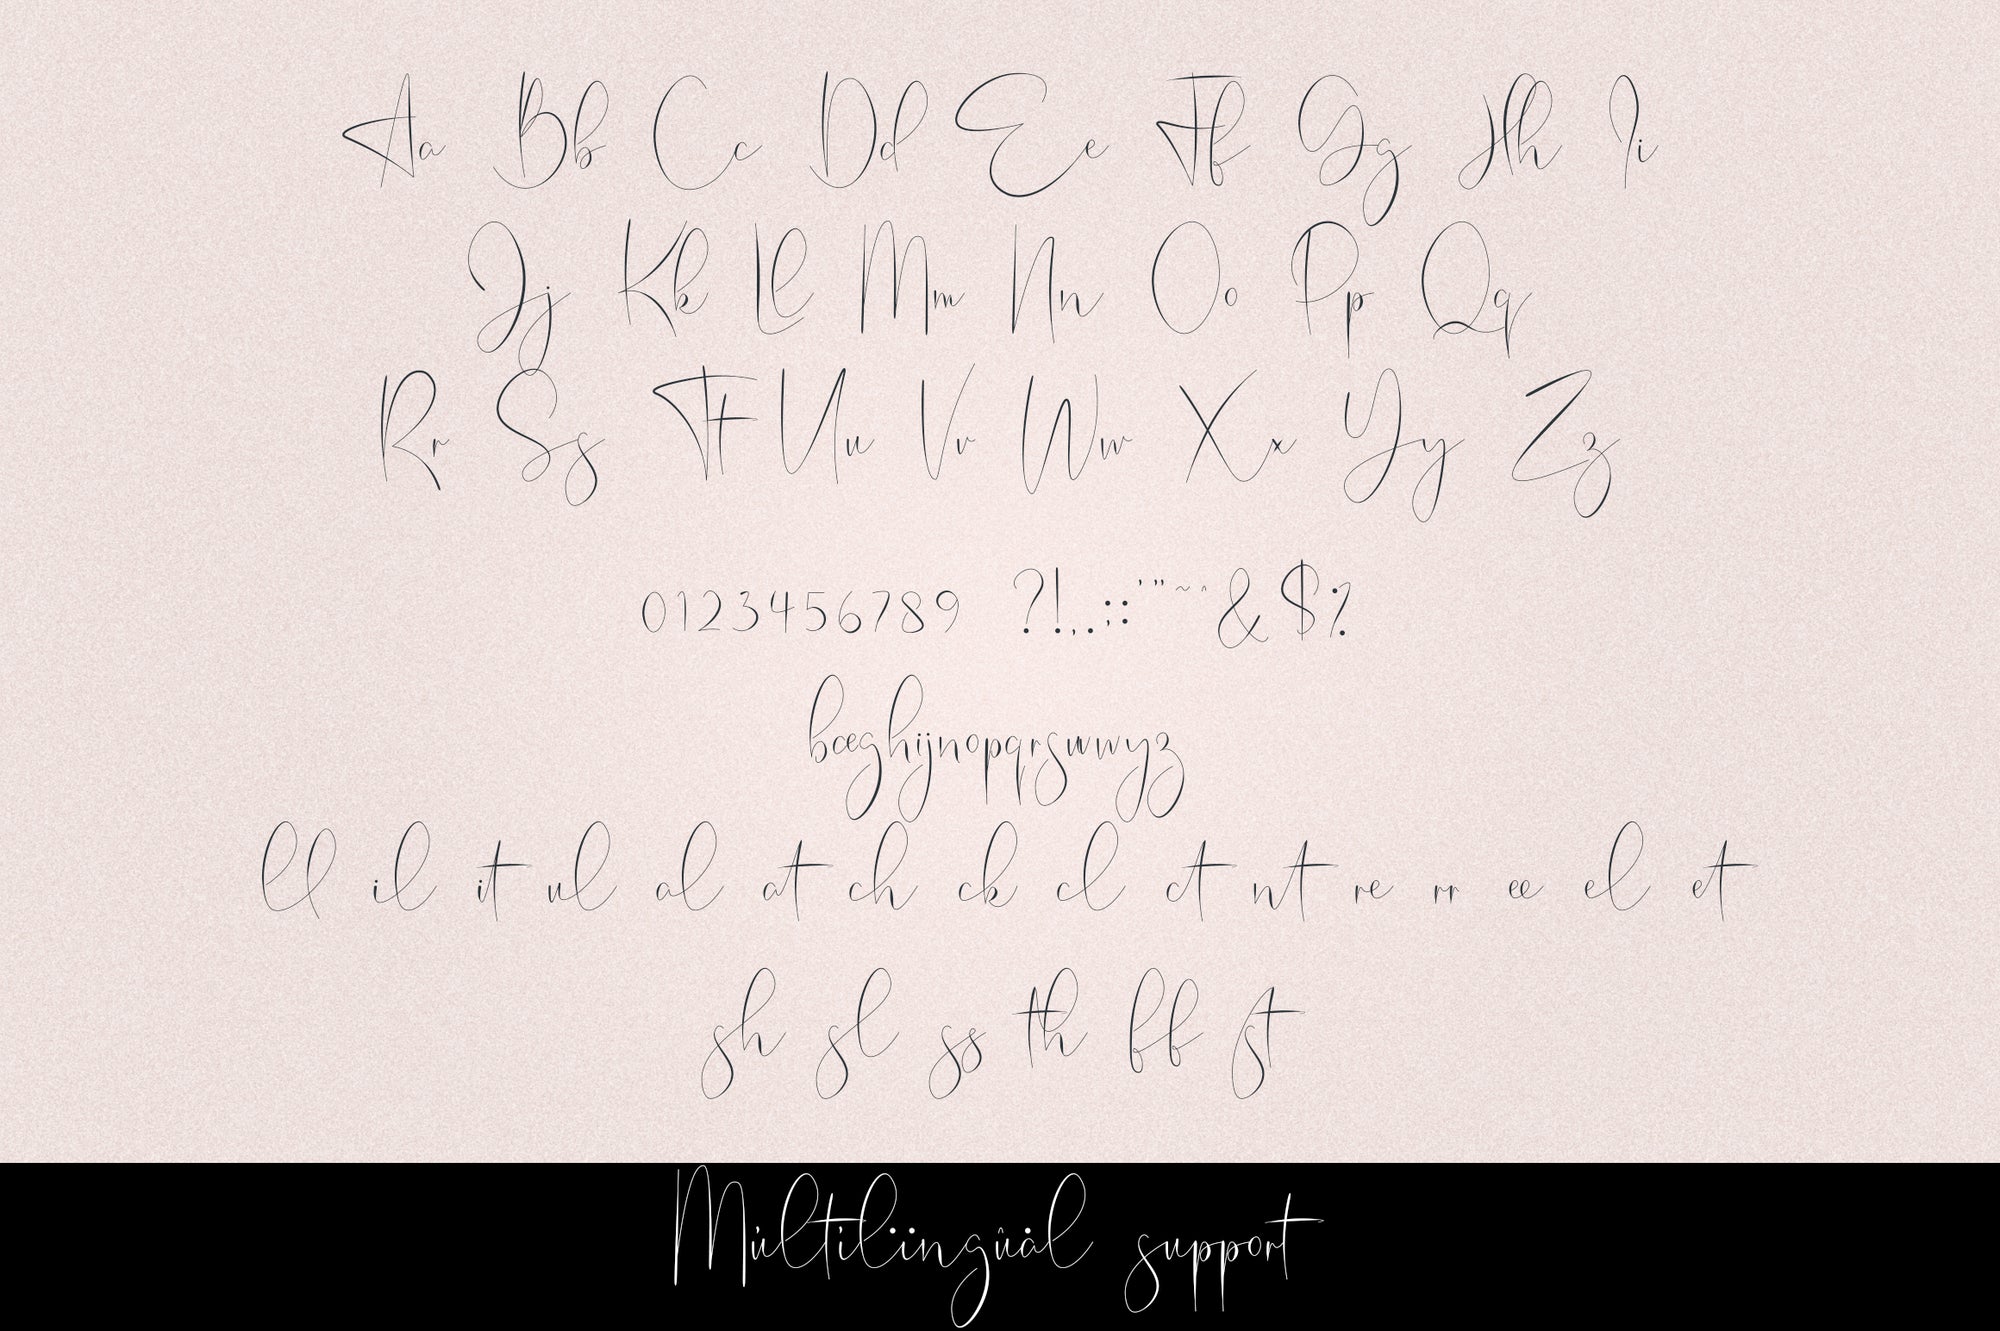 Aa Bb Cc Dd Ee Ff Gg Hh Ii
Jj Kk Ll Mm Nn Oo Pp Qq
Rr Ss Tt Uu Vv Ww Xx Yy Zz
0123456789 ?!,.;:'"~^&$%
bceghijnopqrsuvwyz
ll il it ul al at ch ck cl ct nt re rr ee el et
sh sl ss th ff st
support